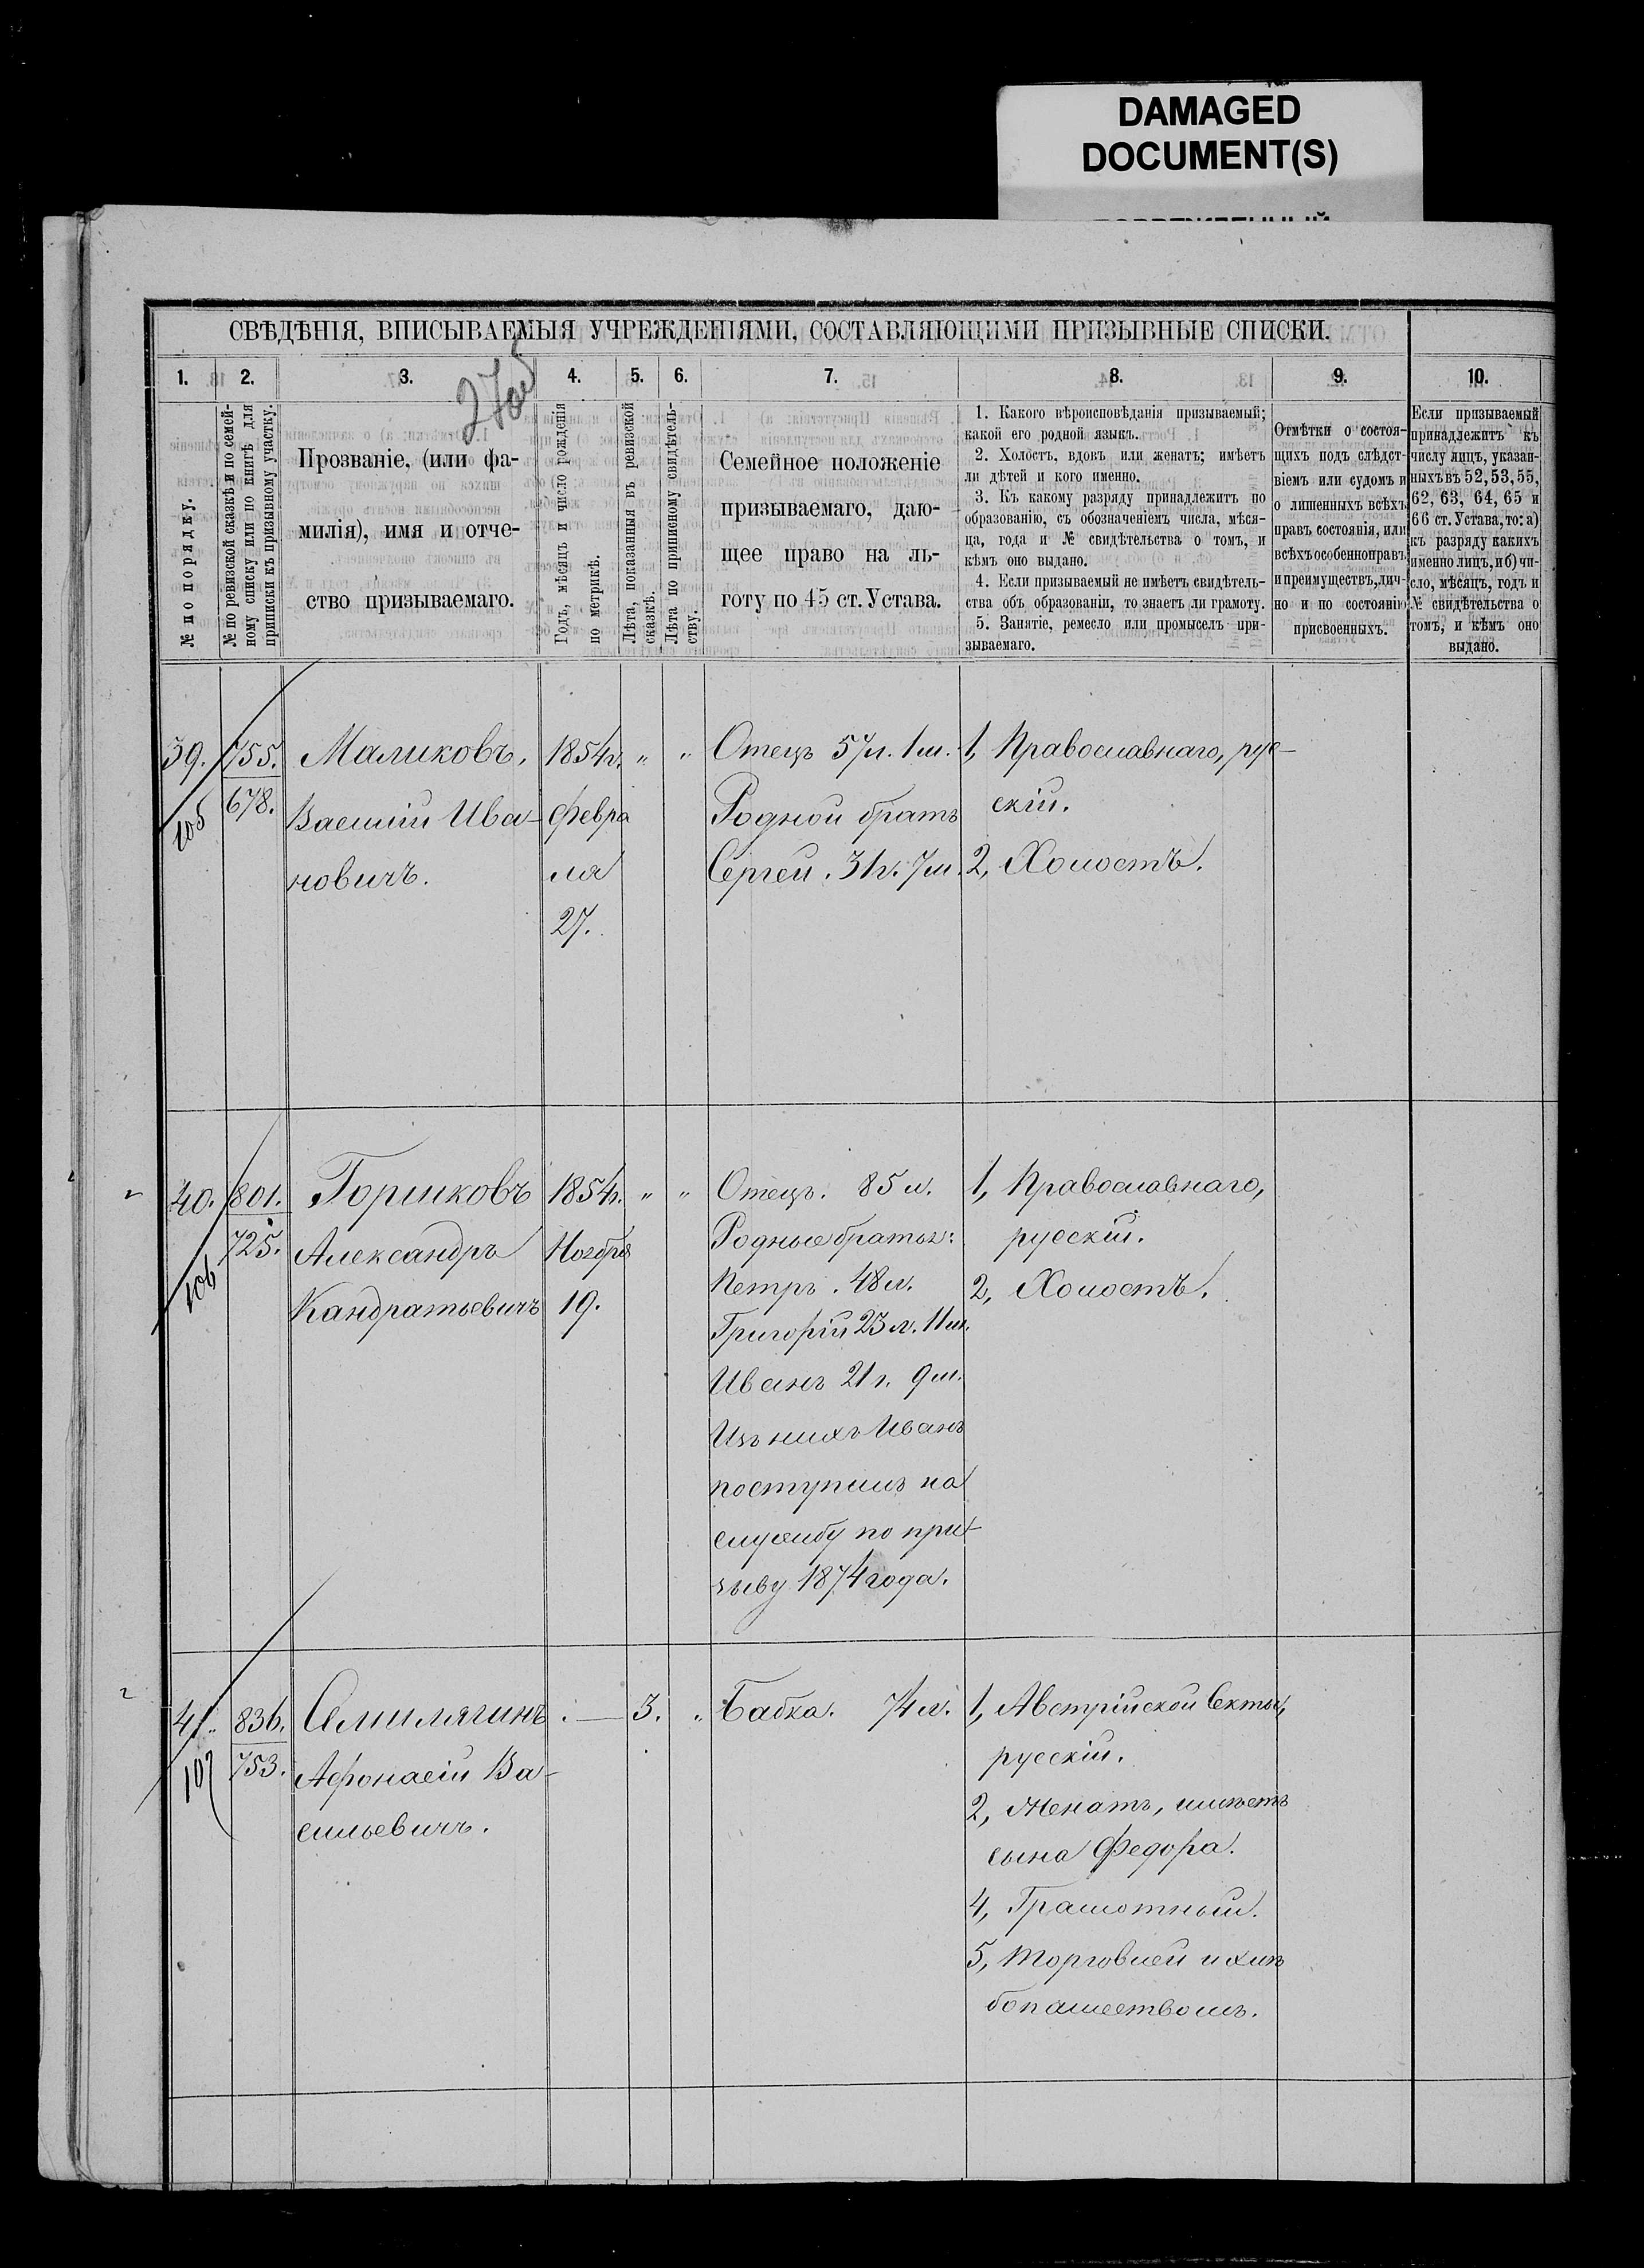 DAMAGED
DOCUMENT(S)
СВѢДѢНІЯ, ВПИСЫВАЕМЫЯ УЧРЕЖДЕНІЯМИ, СОСТАВЛЯЮЩИМИ ПРИЗЫВНЫЕ СПИСКИ.
1. 2. 3. 4. 5. 6. 7. 8. 9. 10.
№ по порядку.
№ по ревизской сказкѣ и по семей-
ному списку или по книгѣ для
приписки къ призывному участку.
Прозваніе, (или фа-
милія), имя и отче-
ство призываемаго.
Годъ, мѣсяцъ и число рожденія
по метрикѣ.
Лѣта, показанныя въ ревизской
сказкѣ.
Лѣта по приписному свидѣтель-
ству.
Семейное положеніе
призываемаго, даю-
щее право на ль-
готу по 45 ст. Устава.
1. Какого вѣроисповѣданія призываемый;
какой его родной языкъ.
2. Холостъ, вдовъ или женатъ; имѣетъ
ли дѣтей и кого именно.
3. Къ какому разряду принадлежитъ по
образованію, съ обозначеніемъ числа, мѣся-
ца, года и № свидѣтельства о томъ, и
кѣмъ оно выдано.
4. Если призываемый не имѣетъ свидѣтель-
ства объ образованіи, то знаетъ ли грамоту.
5. Занятіе, ремесло или промыселъ при-
зываемаго.
Отмѣтки о состоя-
щихъ подъ слѣдст-
віемъ или судомъ и
о лишенныхъ всѣхъ
правъ состоянія, или
всѣхъ особенно правъ
и преимуществъ, лич-
но и по состоянію
присвоенныхъ.
Если призываемый
принадлежитъ къ
числу лицъ, указан-
ныхъ въ 52, 53, 55,
62, 63, 64, 65 и
66 ст. Устава, то: а)
къ разряду какихъ
именно лицъ, и б) чи-
сло, мѣсяцъ, годъ и
№ свидѣтельства о
томъ, и кѣмъ оно
выдано.
39.
105
755.
678.
Маликовъ,
Василій Ива-
новичъ.
1854г.
Февра
ля
27.
"
"
Отецъ 57л. 1м.
Родной братъ
Сергей. 31г. 7м.
1, Православнаго, рус-
скій.
2, Холостъ.
40.
106
801.
725.
Горшковъ
Александръ
Кандратьевичъ
1854г.
Ноября
19.
"
"
Отецъ. 85л.
Родные братья:
Петръ. 48л.
Григорій 23л. 11м.
Иванъ 21г. 9м.
Изъ нихъ Иванъ
поступилъ на
службу по при-
зыву 1874 года.
1, Православнаго,
русскій.
2, Холостъ.
41.
107
836.
753.
Семилягинъ
Афонасій Ва-
сильевичъ.
—
3.
"
Бабка. 74л.
1, Австрійской Секты,
русскій.
2, Женатъ, имѣетъ
сына Федора.
4, Грамотный.
5, Торговлей и хлѣ
бопашествомъ.